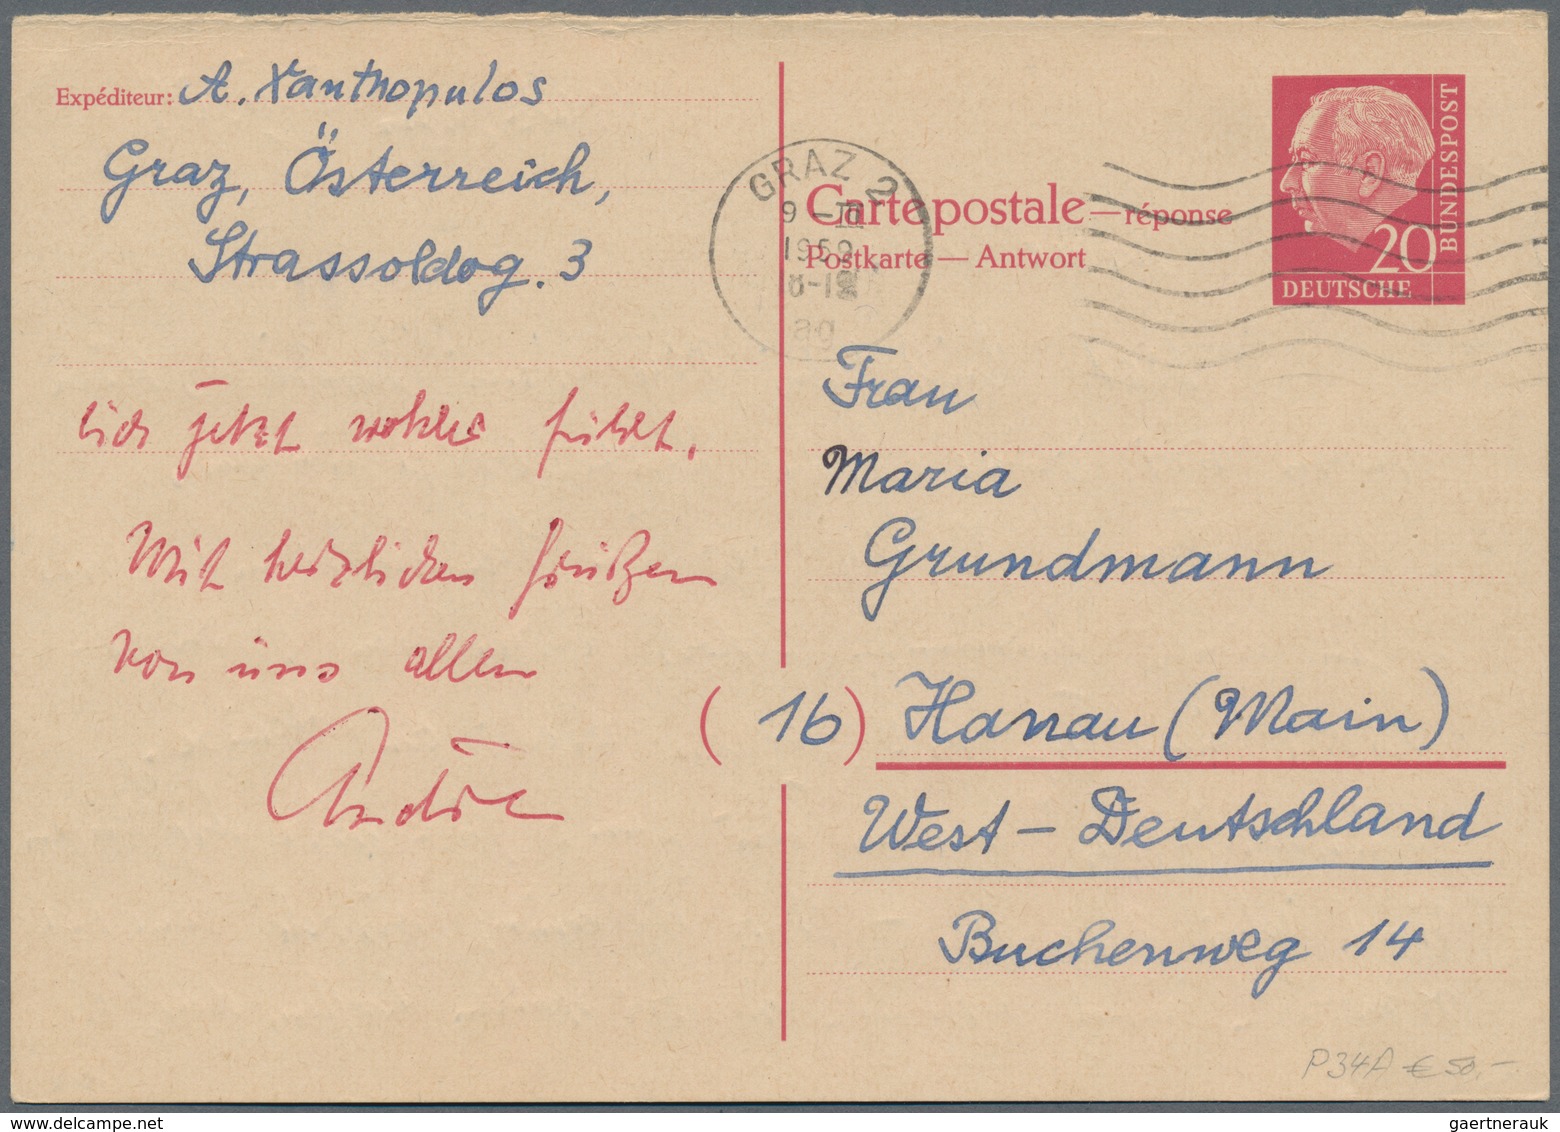 Expéditeur: A. Xanthopulos
Graz, Österreich,
Strassoldog. 3
sich jetzt wohler fühlt.
Mit herzlichen Grüßen
von uns allen
GRAZ 2
9 -III
1959
Carte postale — réponse
Postkarte — Antwort
20
DEUTSCHE
BUNDESPOST
Frau
Maria
Grundmann
(16) Hanau (Main)
West-Deutschland
Buchenweg 14
P34A € 50,-
gaertnerauk